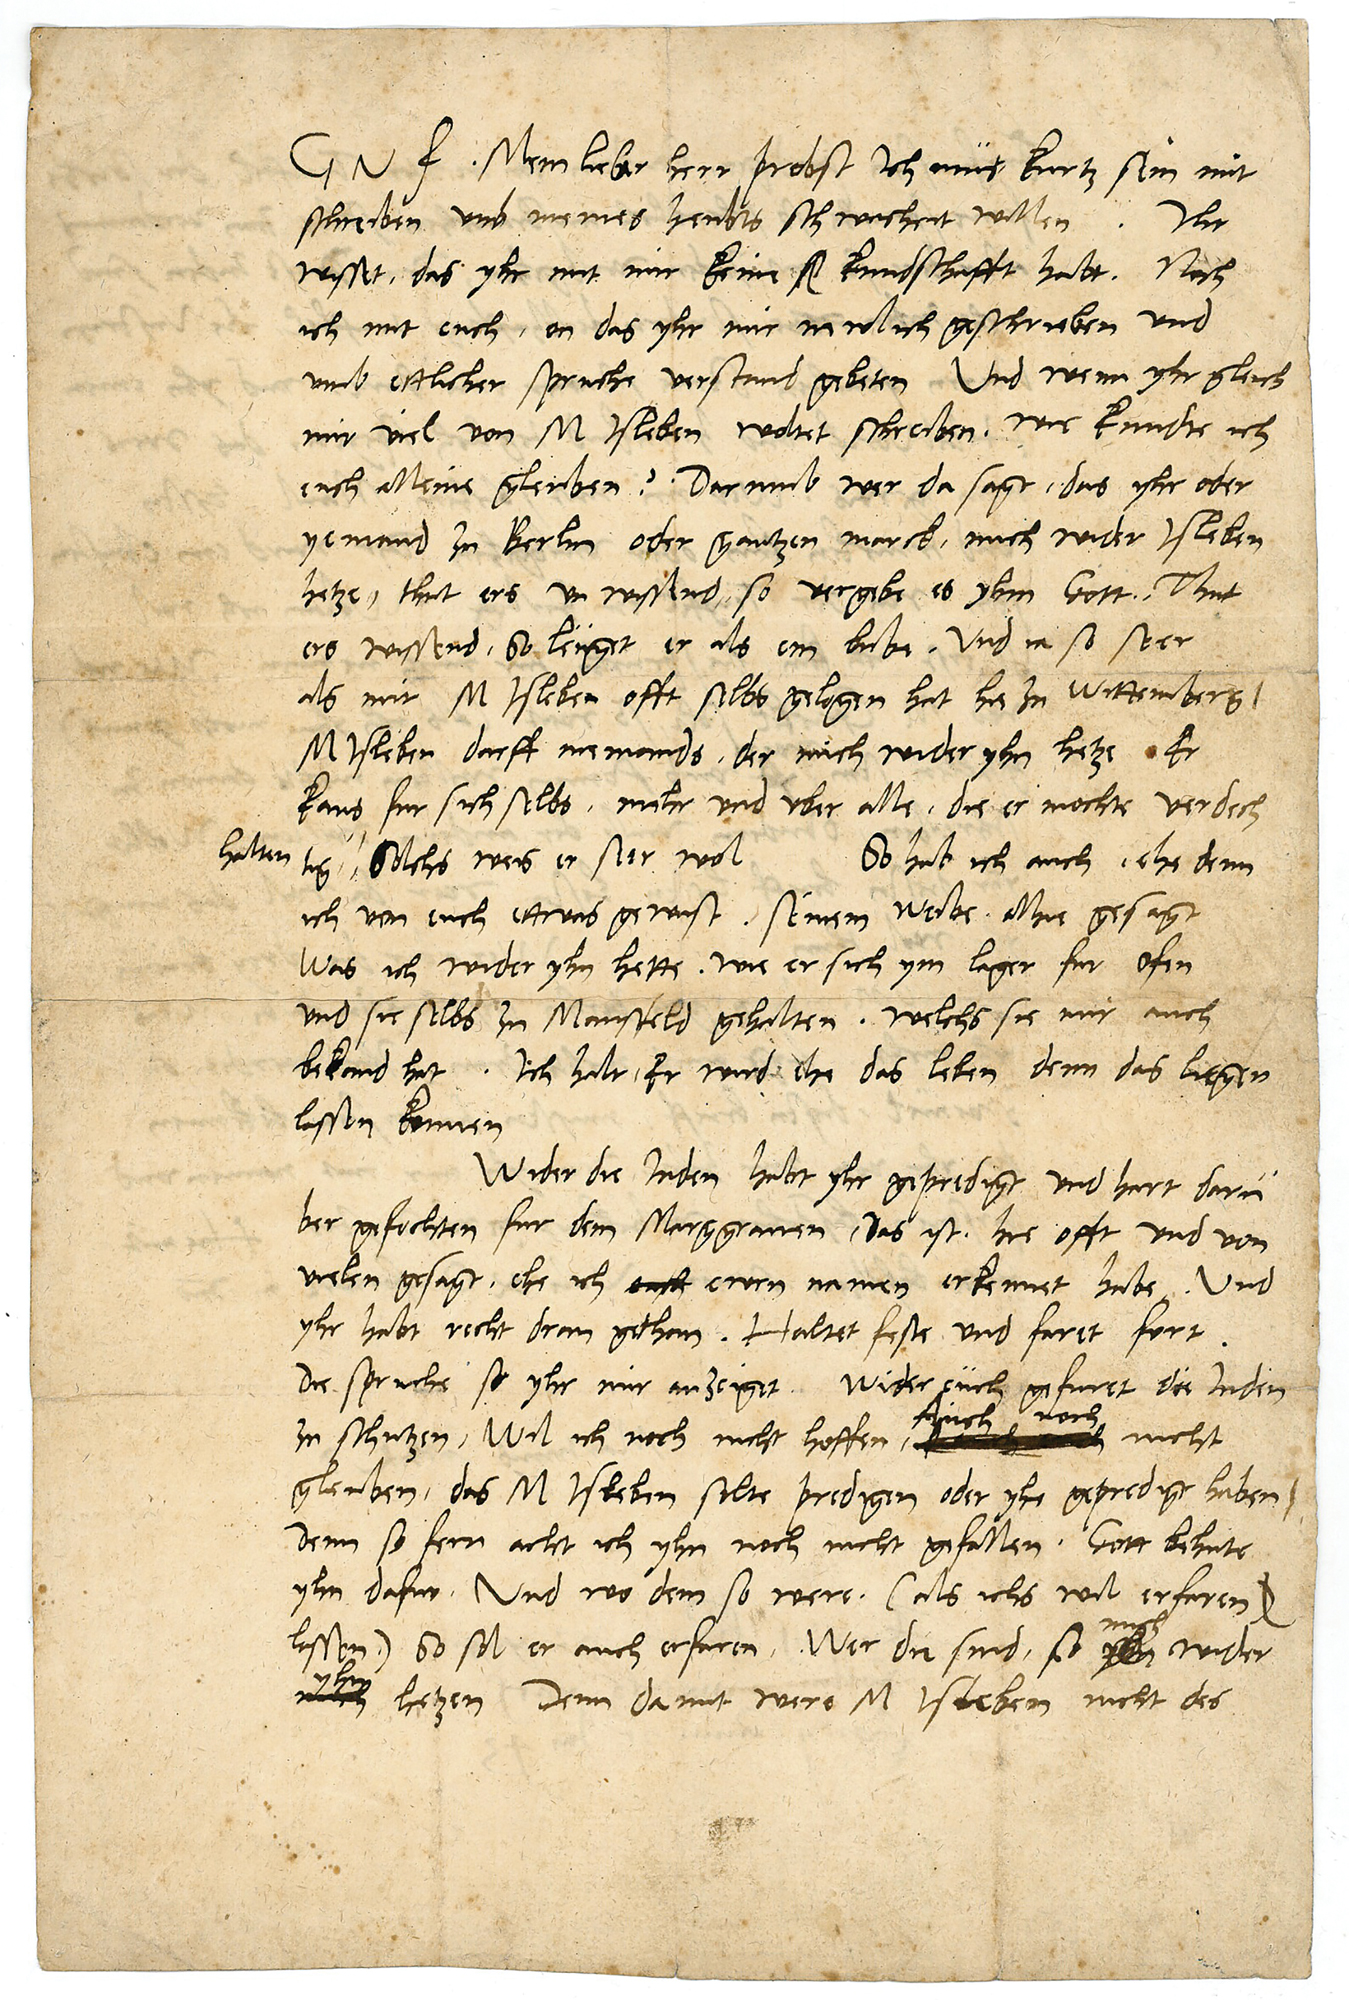 G N f. Mein lieber herr probst Ich mus kurtz sein mit
schreiben umb meines heubts schwacheit willen. Ihr
wisset, das yhr mit mir keine kundschafft habt. Noch
ich mit euch, on das yhr mir newlich geschrieben und
umb ettlicher spruche verstand gebeten Und wenn yhr gleich
mir viel von M Isleben woltet schreiben. wie kundte ich
euch alleine gleuben? Darumb wer da sagt, das yhr oder
yemand zu Berlin oder gantzen marck, mich wider Isleben
hetze, thut ers unwissend, so vergebe es yhm Gott. Thut
ers wissend, So leuget er als ein bube. Und ia so seer
als mir M Isleben offt selbs gelogen hat hie zu Wittemberg/
M Isleben darff niemands, der mich wider yhn hetze Er
kans fur sich selbs, mehr und uber alle, die er mochte verdech
halten tig, Solchs weis er seer wol So hab ich auch, ehe denn
ich von euch ettwas gewust, seinem Weibe. alhie gesagt
Was ich wider yhn hette. wie er sich ym lager fur ofen
und sie selbs zu Mansfeld gehalten. welchs sie mir auch
bekand hat. Ich halt, Er wird ehe das leben denn das liegen
lassen konnen
Wider die Juden habt yhr gepredigt und hart daru
ber gefochten fur dem Marggrauen, Das ist. hie offt und von
vielen gesagt, ehe ich ewrn namen erkennet habe. Und
yhr habt recht dran gethan. Haltet feste und faret fort.
Die spruche so yhr mir anzeiget Wider euch gefuret die Juden
zu schutzen, Wil ich noch nicht hoffen, Auch noch nicht
gleuben, das M Isleben solte predigen oder yhe gepredigt haben/
Denn so fern acht ich yhn noch nicht gefallen. Gott behute
yhn dafur. Und wo dem so were. (als ichs wil erfaren
lassen.) So sol er auch erfaren, Wer die sind, so mich wider
yhn hetzen Denn damit were M Isleben nicht des